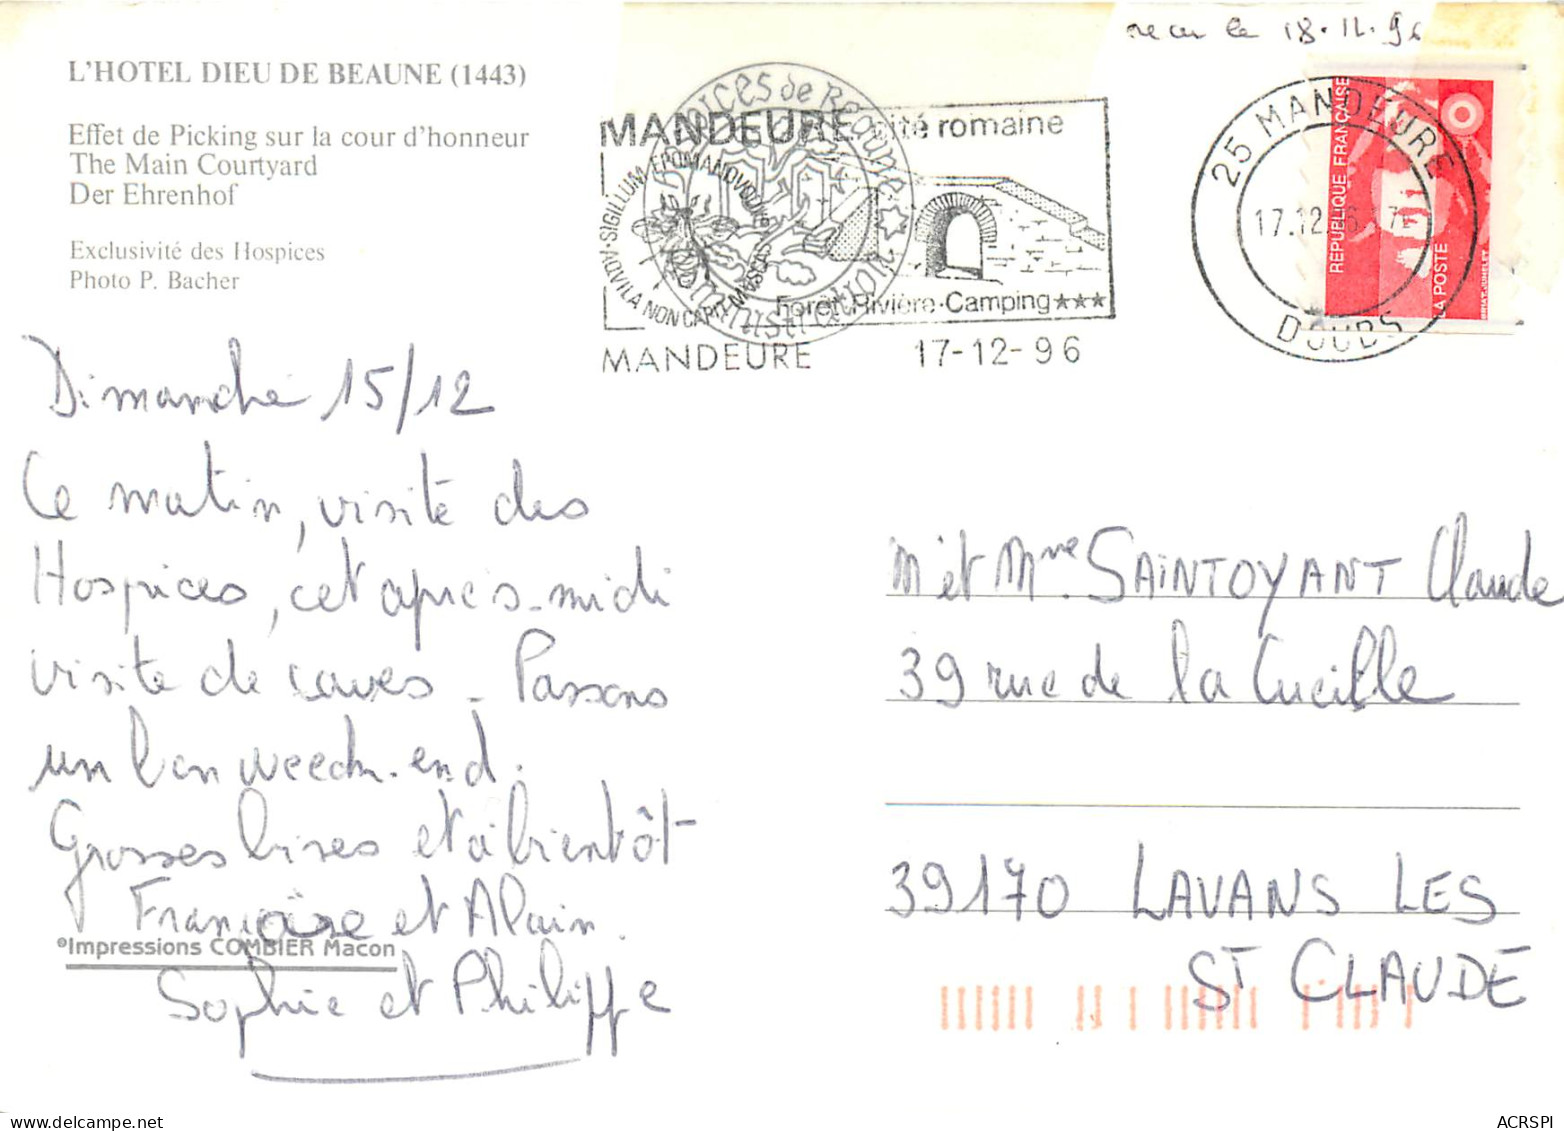 recu le 18.12.96
L'HOTEL DIEU DE BEAUNE (1443)
Effet de Picking sur la cour d'honneur
The Main Courtyard
Der Ehrenhof
Exclusivité des Hospices
Photo P. Bacher
MANDEURE cité romaine
SIGILLUM EPOMANDVODVM
AQVILA NON CAPIT MVSCAS
Hospices de Beaune
Administration
Forêt·Rivière·Camping★★★
MANDEURE 17-12-96
25 MANDEURE
17.12
DOUBS
REPUBLIQUE FRANÇAISE
LA POSTE
Dimanche 15/12
Ce matin, visite des
Hospices, cet après-midi
visite de caves - Passons
un bon weeck-end.
Grosses bises et à bientôt
Françoise et Alain.
Sophie et Philippe
©Impressions COMBIER Macon
M et Mme. SAINTOYANT Claude
39 rue de la Cueille
39170 LAVANS LES
ST CLAUDE
ACRSPI